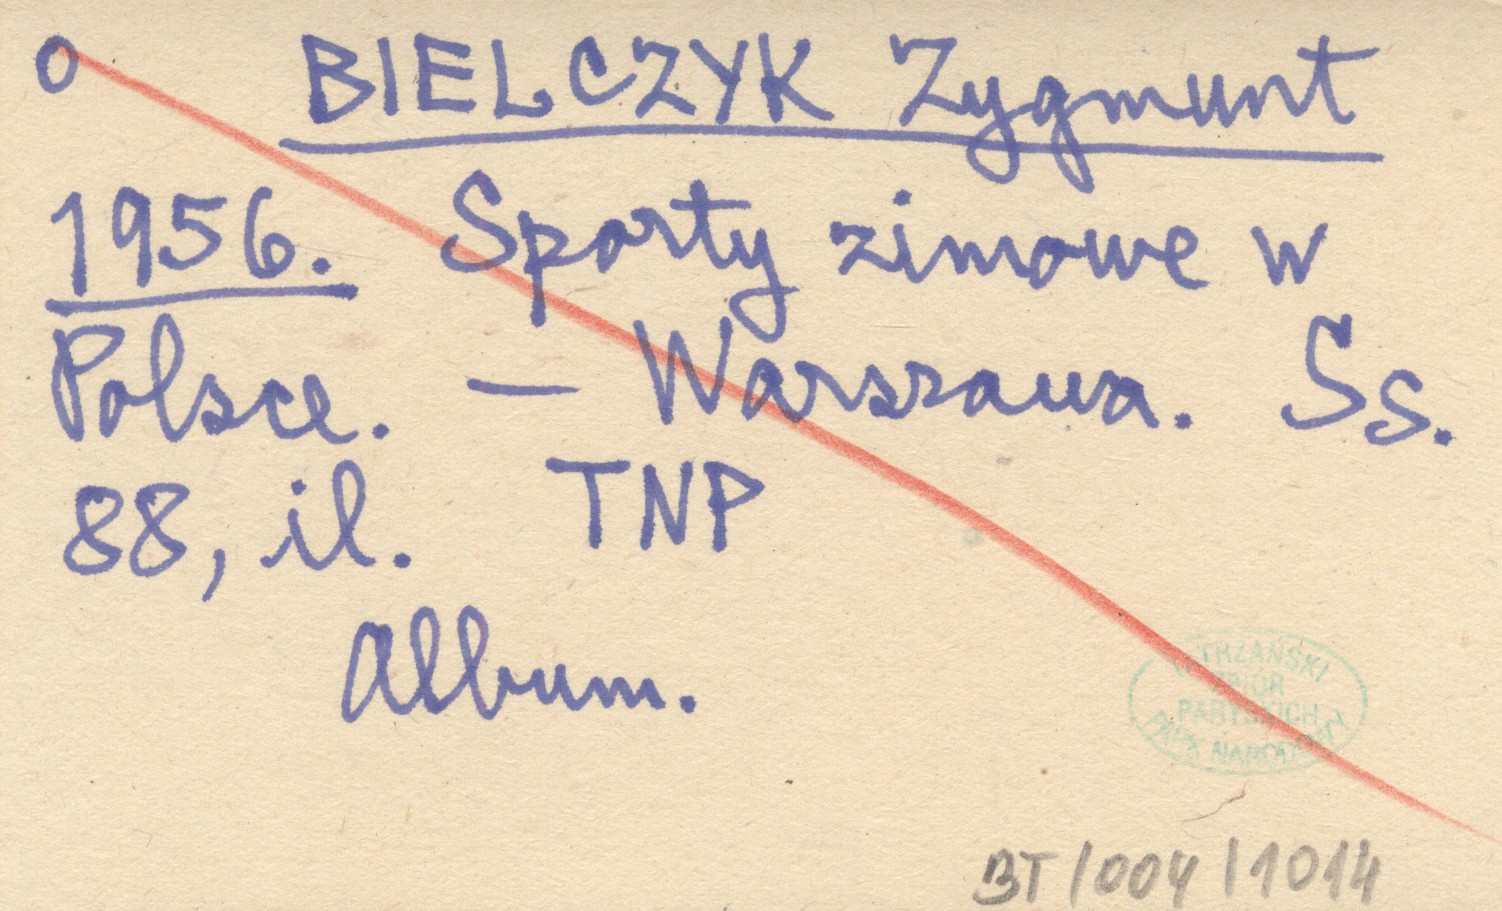 o BIELCZYK Zygmunt
1956. Sporty zimowe w
Polsce. — Warszawa. Ss.
88, il. TNP
Album.
TATRZAŃSKI
ZBIÓR
PARYSKICH
PARK NARODOWY
BT/004/1014